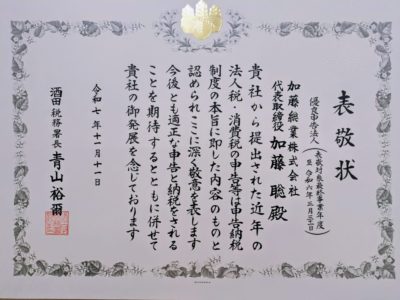 表敬状
優良申告法人
(表敬対象最終事業年度
至 令和六年三月三十一日)
加藤総業株式会社
代表取締役 加藤 聡殿
貴社から提出された近年の
法人税・消費税の申告等は申告納税
制度の本旨に即した内容のものと
認められここに深く敬意を表します
今後とも適正な申告と納税をされる
ことを期待するとともに併せて
貴社の御発展を念じております
令和七年十一月十一日
酒田税務署長 青山裕爾